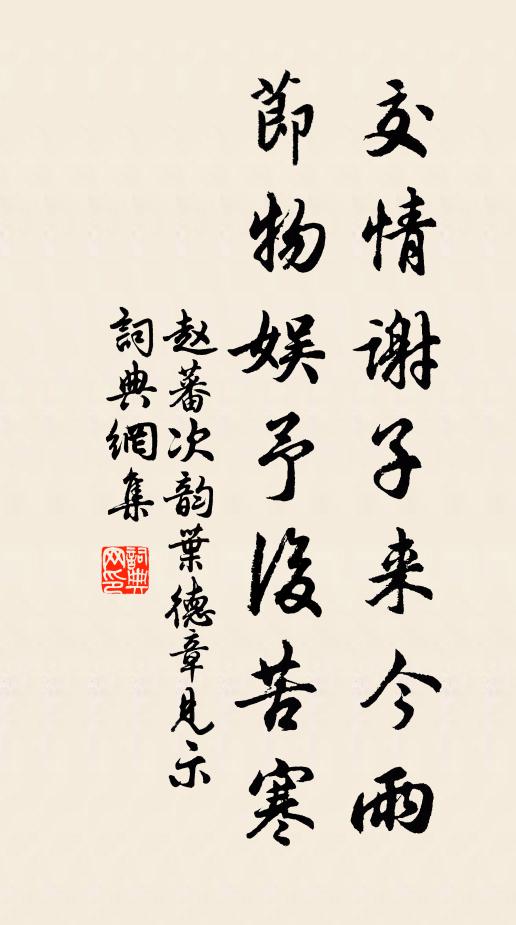 交情谢子来今雨
節物娱予後苦寒
赵蕃次韵葉德章見示
詞典網集
詞典网印